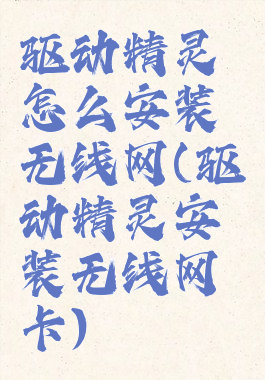 驱动精灵
怎么安装
无线网(驱
动精灵安
装无线网
卡)